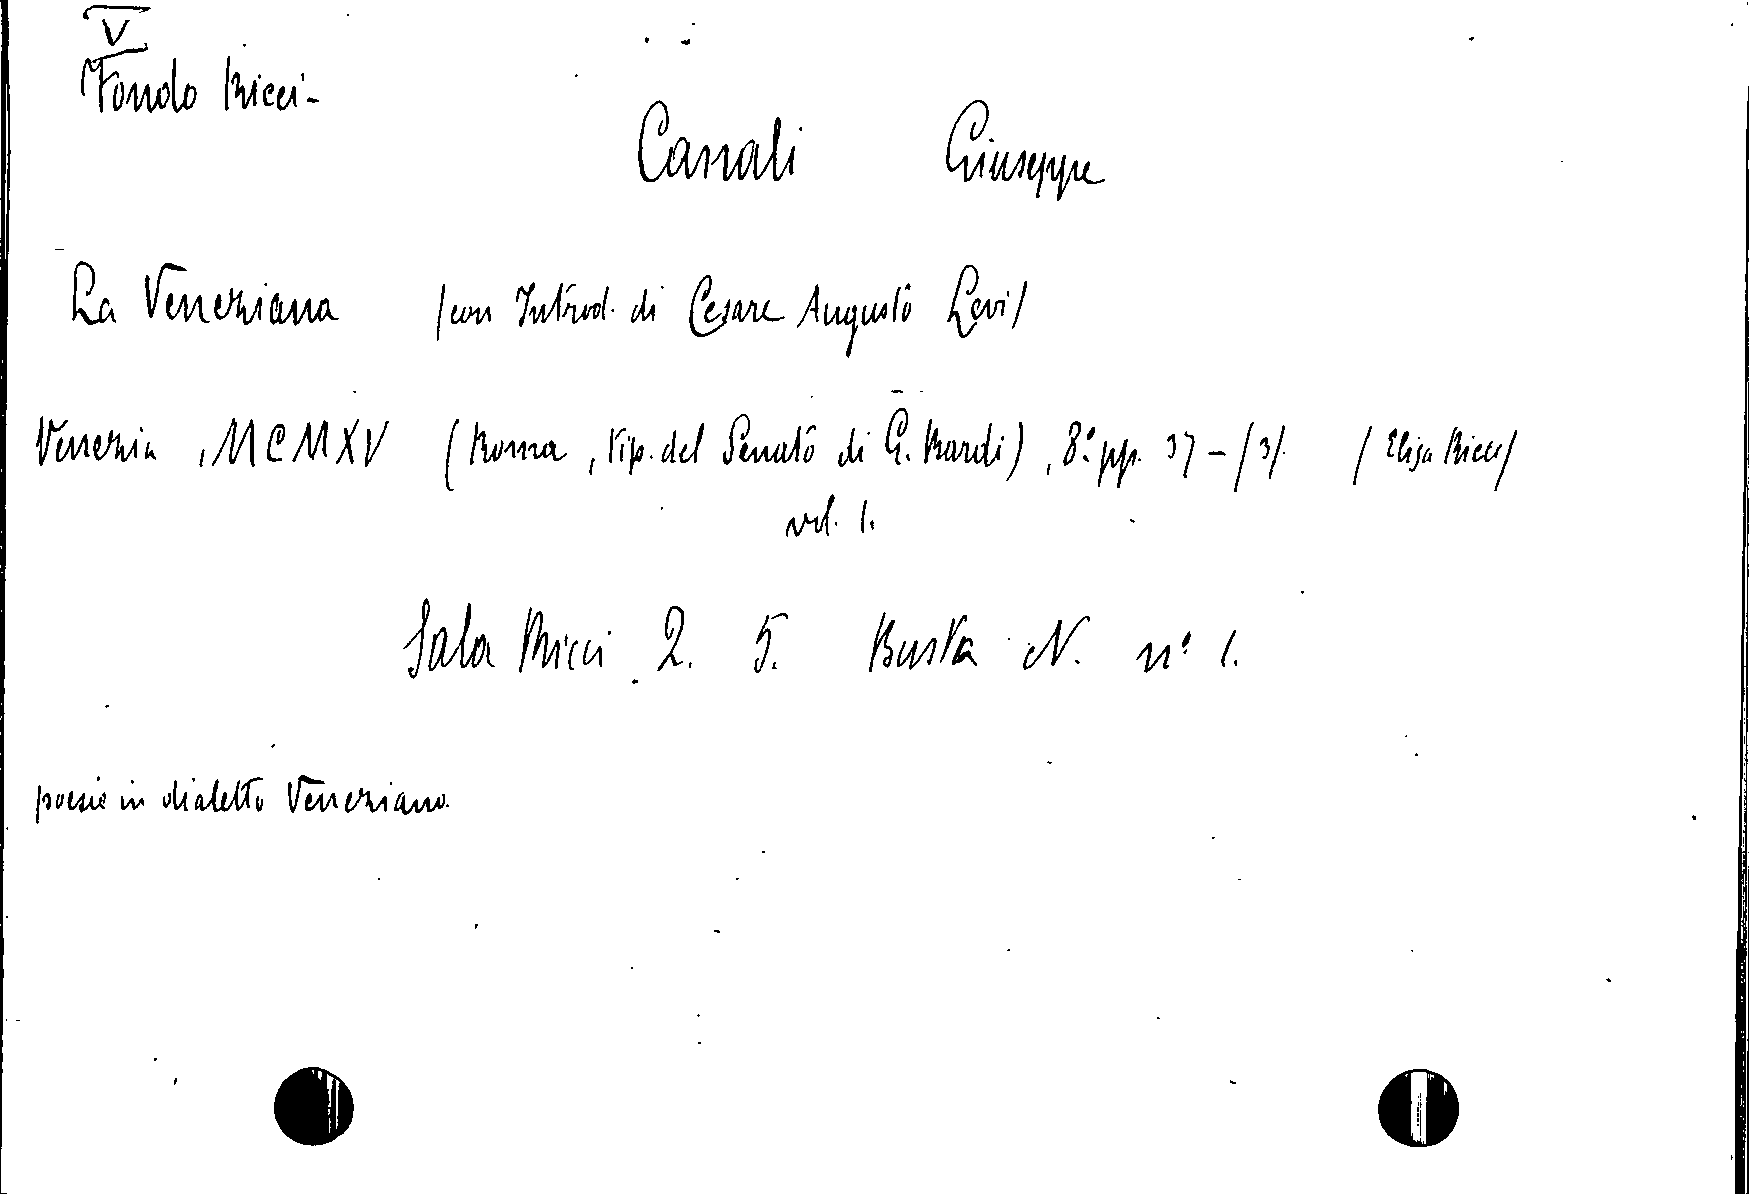 V
Fondo Ricci-
Canali Giuseppe
La Veneziana /con Introd. di Cesare Augusto Levi/
Venezia, MCMXV (Roma, tip. del Senato di G. Bardi), 8.° pp. 37-/3/. /Elisa Ricci/
vol. 1.
Sala Ricci 2. 5. Busta N. n° 1.
poesie in dialetto Veneziano.